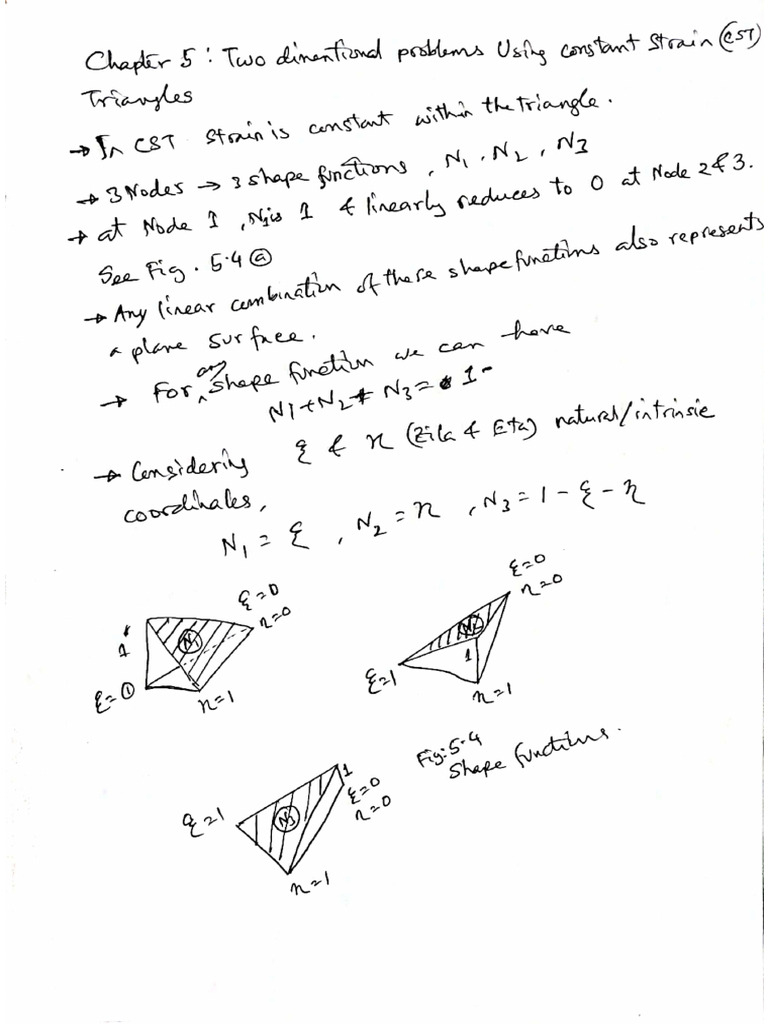 Chapter 5 : Two dimentional problems Using constant Strain (CST)
Triangles
→ In CST strain is constant within the triangle.
→ 3 Nodes → 3 shape functions, N1, N2, N3
→ at Node 1, N1 is 1 & linearly reduces to 0 at Node 2 & 3.
See Fig. 5.4 ⓐ
→ Any linear combination of these shape functions also represents
a plane surface.
→ For any shape function we can have
N1 + N2 + N3 = 1
→ Considering ξ & η (Zita & Eta) natural/intrinsic
coordinates,
N1 = ξ , N2 = η , N3 = 1 - ξ - η
ξ=0
η=0
1
N1
ξ=①
η=1
ξ=0
η=0
N2
1
ξ=1
η=1
Fig: 5.4
Shape functions.
1
ξ=0
η=0
ξ=1
N3
η=1